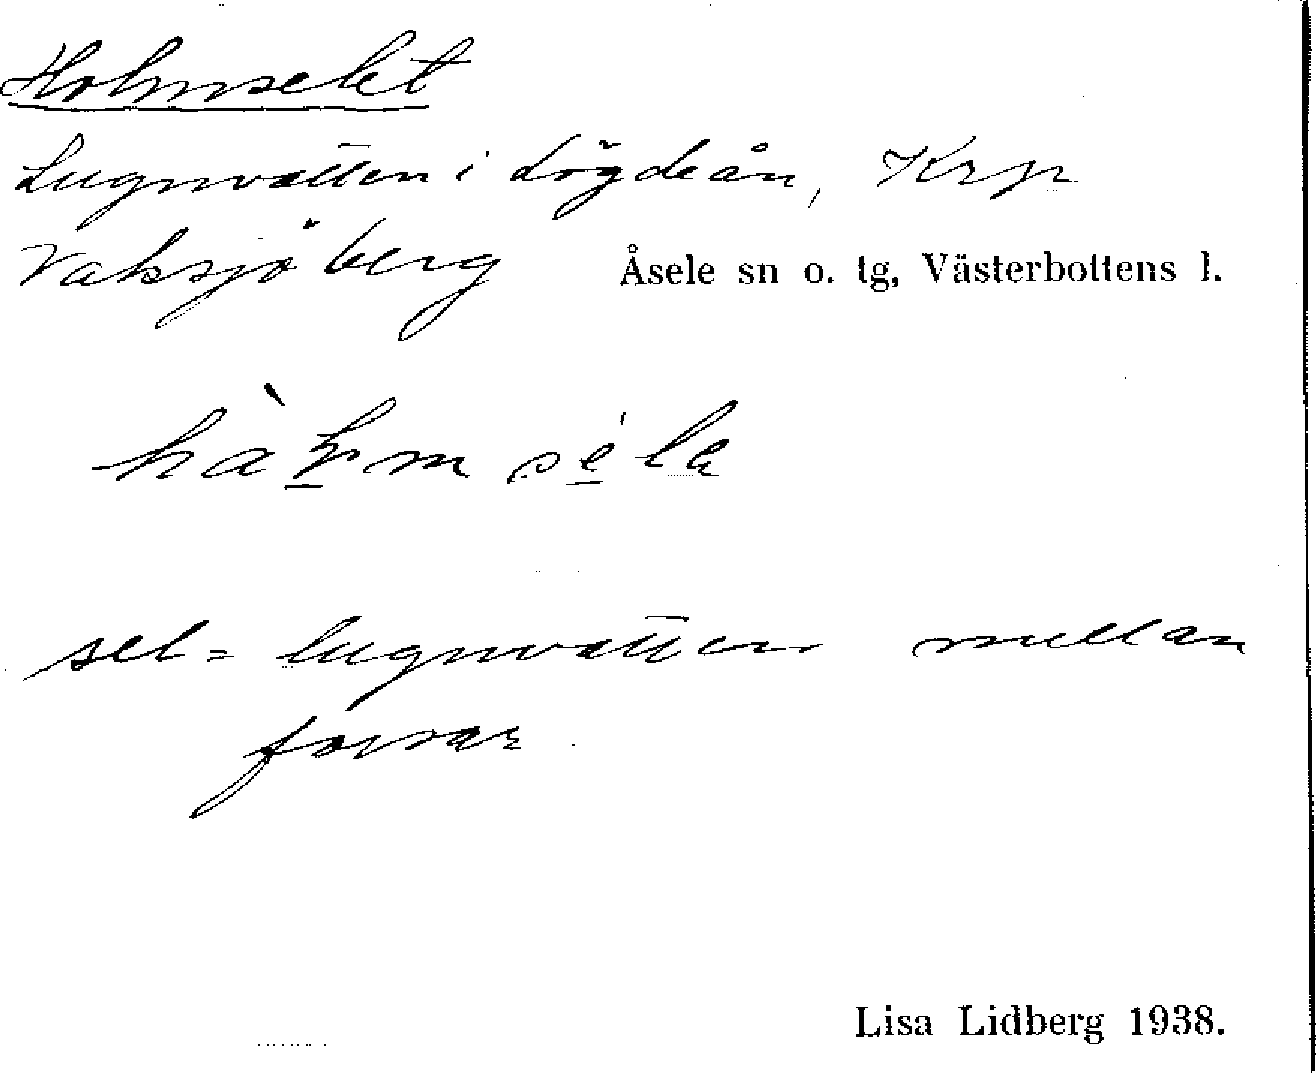 Holmselet
Lugnvatten i Lögdeån, Krp
Vaksjöberg Åsele sn o. tg, Västerbottens l.
sel = lugnvatten mellan
forsar
Lisa Lidberg 1938.